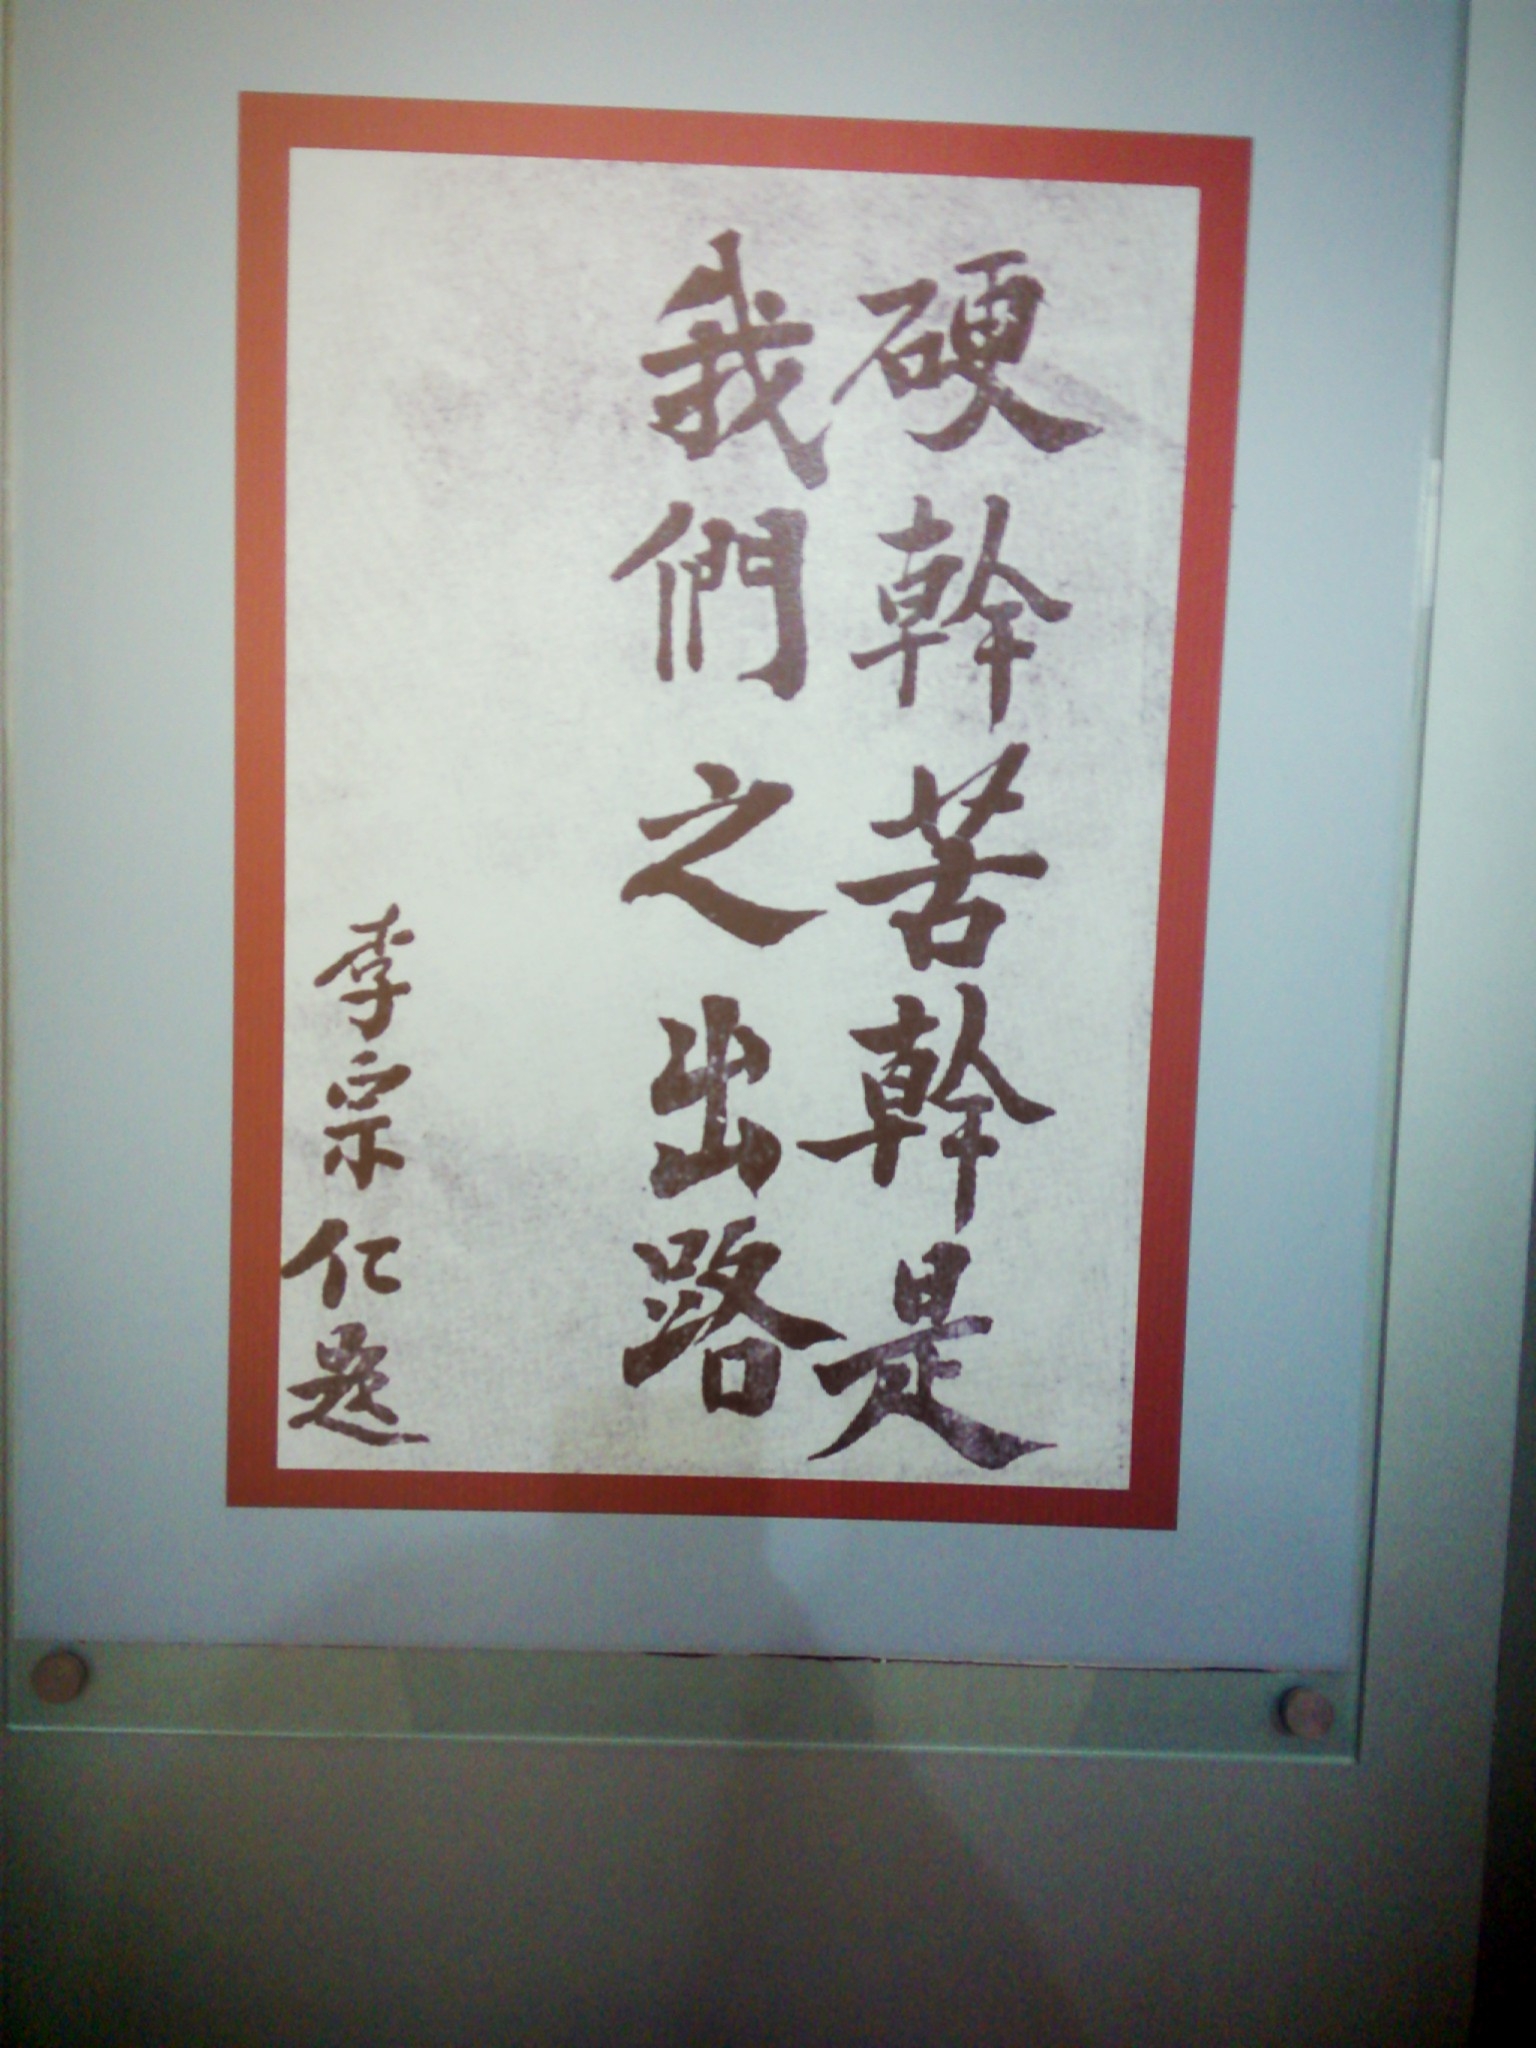 硬幹苦幹是
我們之出路
李宗仁題